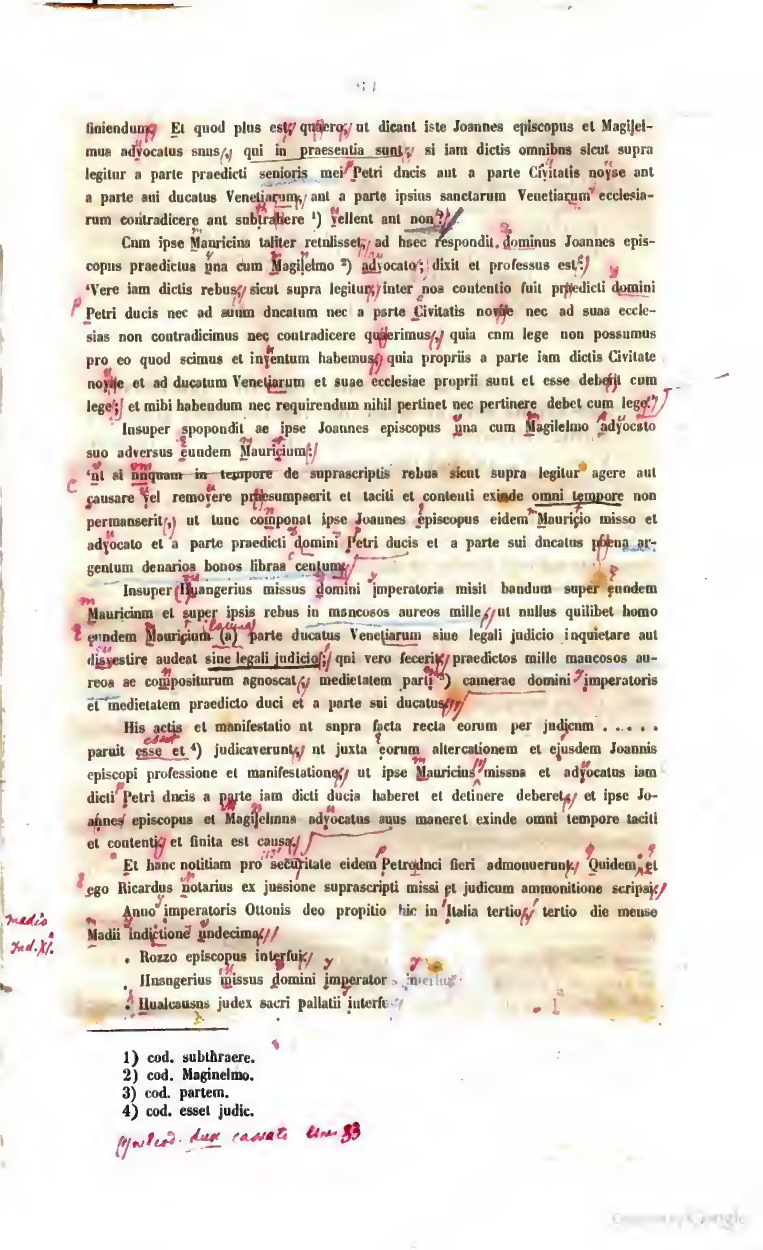 finiendum, Et quod plus est, quaero, ut dicant iste Joannes episcopus et Magijel-
mua advocatus snus, qui in praesentia sunt, si iam dictis omnibns sicut supra
legitur a parte praedicti senioris mei Petri dncis aut a parte Civitatis novae ant
a parte sui ducatus Venetiarum, ant a parte ipsius sanctarum Venetiarum ecclesia-
rum contradicere ant subtrahere ¹) vellent ant non?
Cnm ipse Mauricina taliter retnlisset, ad hsec respondit dominus Joannes epis-
copus praedictus una cum Magilelmo ²) advocato; dixit et professus est:
‘Vere iam dictis rebus, sicut supra legitur, inter noa contentio fuit praedicti domini
Petri ducis nec ad suum dncatum nec a parte Civitatis novae nec ad suas eccle-
sias non contradicimus nec contradicere quaerimus, quia cnm lege non possumus
pro eo quod scimus et inventum habemus, quia propriis a parte iam dictis Civitate
novae et ad ducatum Venetiarum et suae ecclesiae proprii sunt et esse debent cum
lege; et mibi habendum nec requirendum nihil pertinet nec pertinere debet cum lege.’
Insuper spopondit ae ipse Joannes episcopus una cum Magilelmo advocsto
suo adversus eundem Mauricium:
‘nt si nnquam in tempore de suprascriptis rebua sicut supra legitur agere aut
causare vel removere praesumpserit et taciti et contenti exinde omni tempore non
permanserit, ut tunc componat ipse Joaunes episcopus eidem Mauricio misso et
advocato et a parte praedicti domini Petri ducis et a parte sui dncatus poena ar-
gentum denarios bonos libraa centum,
Insuper Huangerius missus domini imperatoria misit bandum super eundem
Mauricinm et super ipsis rebus in mancosos aureos mille, ut nullus quilibet homo
eundem Mauricium (a) parte ducatus Venetiarum siue legali judicio inquietare aut
disvestire audeat sine legali judicio; qni vero fecerit, praedictos mille maucosos au-
reos ae compositurum agnoscat, medietatem parti ³) camerae domini imperatoris
et medietatem praedicto duci et a parte sui ducatus.
His actis et manifestatio nt snpra facta recta eorum per judicnm . . . . .
paruit esse et ⁴) judicaverunt, nt juxta eorum altercationem et ejusdem Joannis
episcopi professione et manifestatione, ut ipse Mauricius missna et advocatus iam
dicti Petri dncis a parte iam dicti ducia haberet et detinere deberet, et ipse Jo-
annes episcopus et Magijelmna advocatus suus maneret exinde omni tempore taciti
et contenti, et finita est causa.
Et hanc notitiam pro securitate eidem Petro dnci fieri admonuerunt, Quidem et
ego Ricardus notarius ex jussione suprascripti missi et judicum ammonitione scripsi,
Anno imperatoris Ottonis deo propitio hic in Italia tertio, tertio die mense
Madii indictione undecima,
Rozzo episcopus interfui,
Hnsngerius missus domini imperator
Hualcausns judex sacri pallatii
1) cod. subthraere.
2) cod. Maginelmo.
3) cod. partem.
4) cod. esset judic.